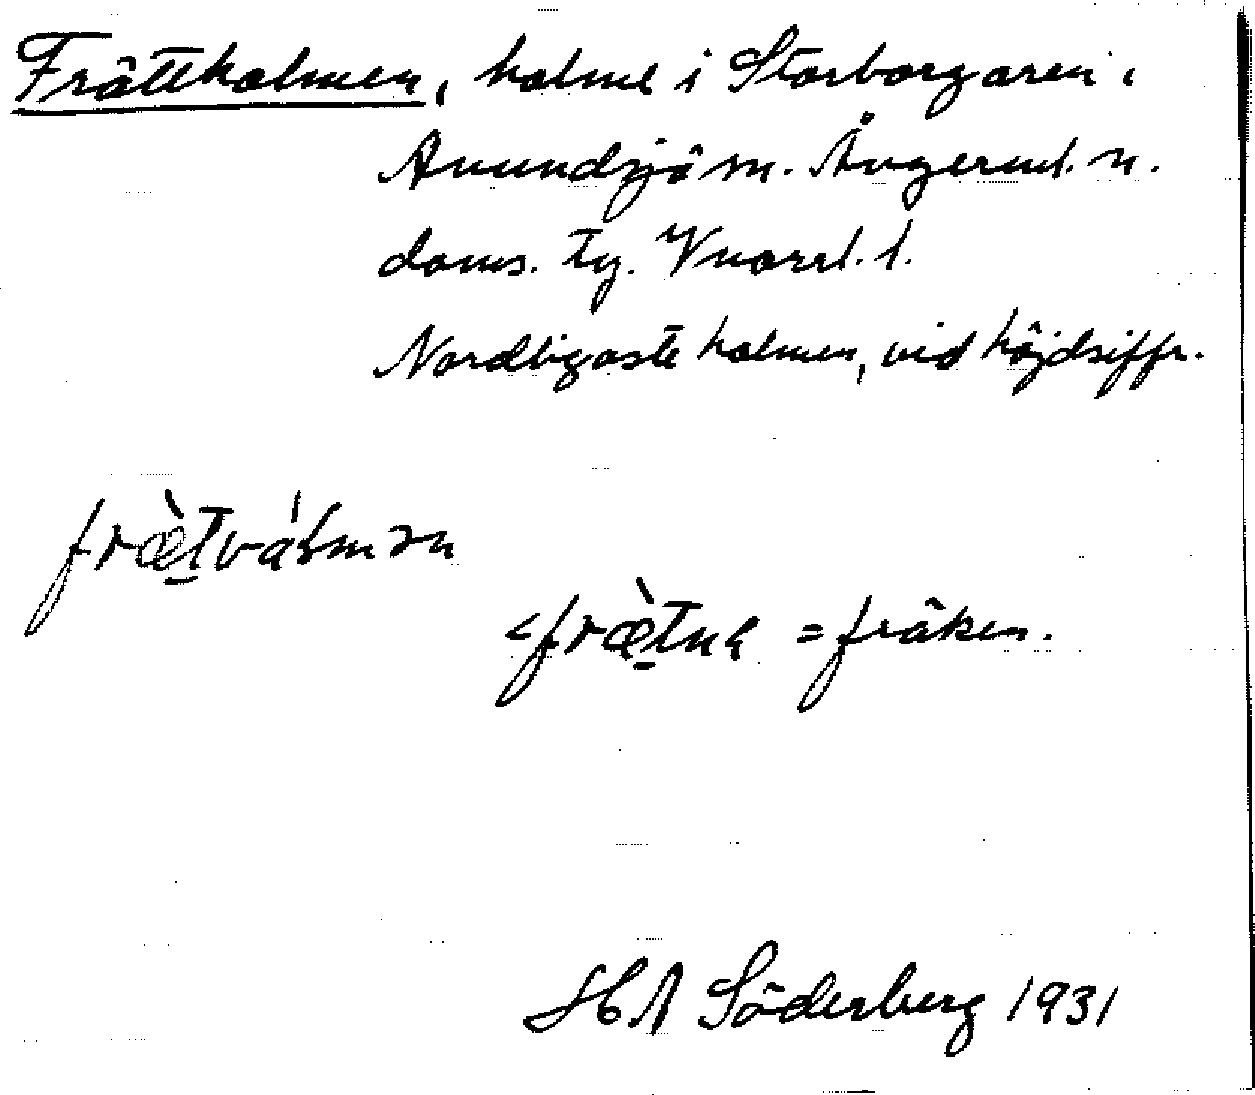 Frättholmen, holme i Storborgaren i
Anundsjö sn. Ångerml. n.
doms. Ty. Vnorrl. l.
Nordligaste holmen, vid höjdsiffr.
fræ̀tvát̶mən
< fræ̀tnɐ = fräken.
HA Söderberg 1931